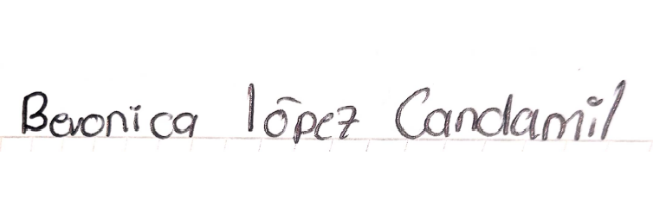 Bevonica lópez Candamil